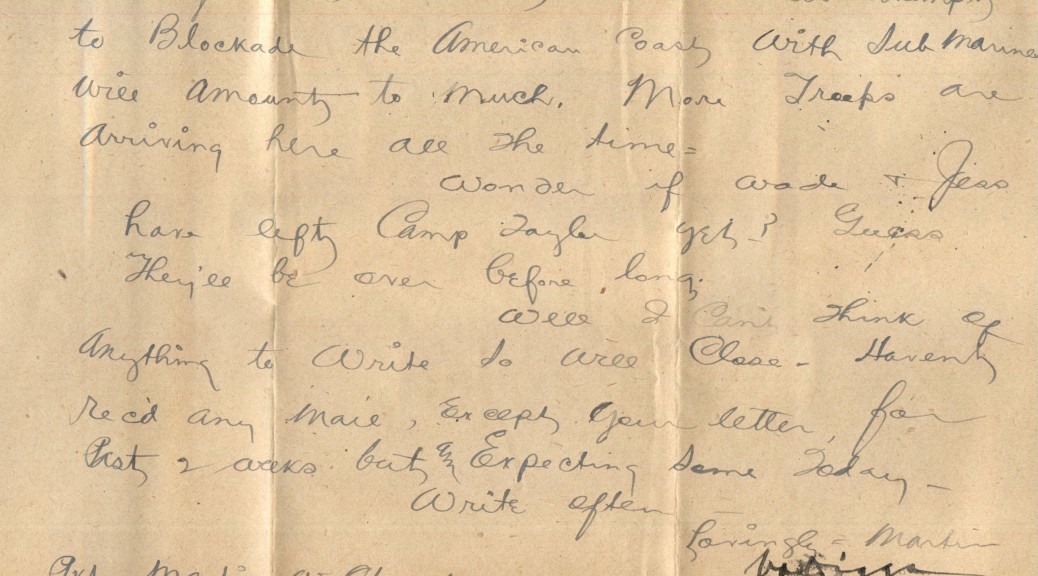 to Blockade the American Coast with Sub Marines
will amount to much. More Troops are
Arriving here all the time=
Wonder if Wade & Jess
have left Camp Taylor yet? Guess
They'll be over before long.
Well I Can't Think of
Anything to Write So Will Close - Havent
Rec'd any Mail, Except Your letter, for
Past 2 weeks but am Expecting Some Today -
Write often
Lovingly = Martin